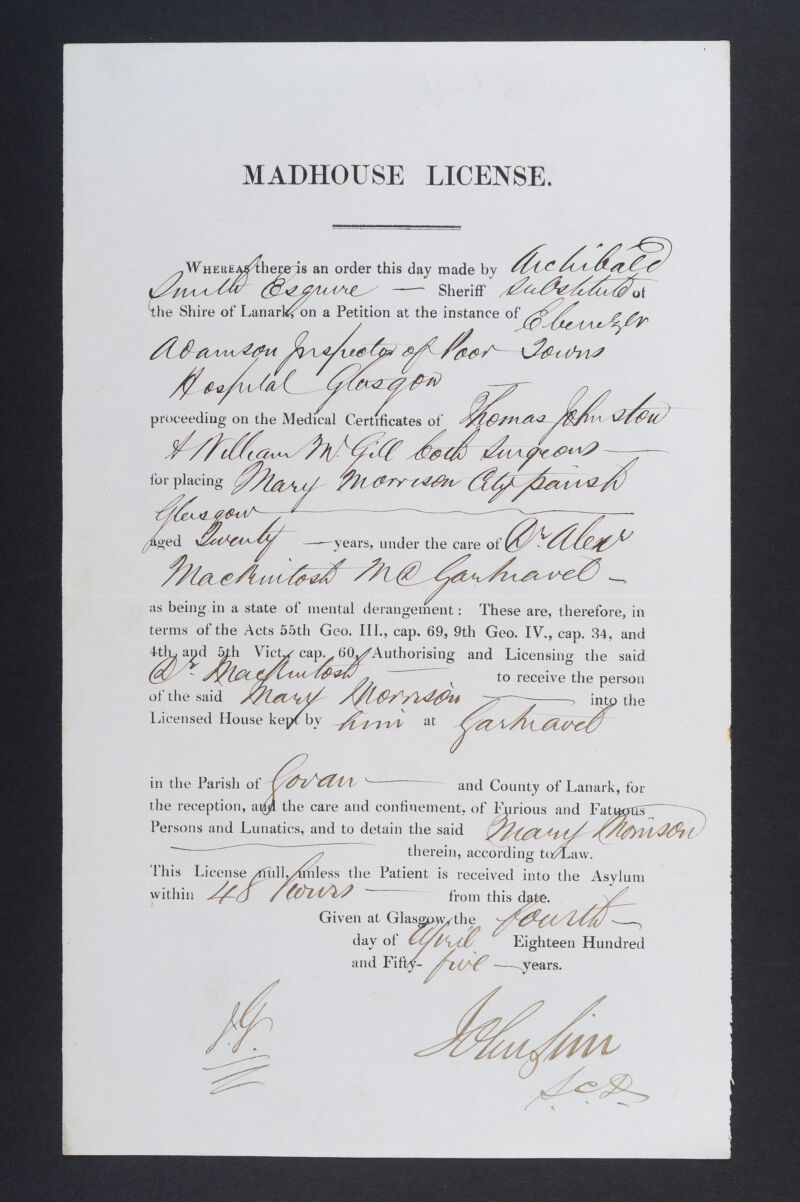 MADHOUSE LICENSE.
WHEREAS there is an order this day made by Archibald
Smith Esquire — Sheriff Substitute of
the Shire of Lanark, on a Petition at the instance of Ebenezer
Adamson Inspector of Poor Towns
Hospital Glasgow
proceeding on the Medical Certificates of Thomas Johnston
& William McGill both surgeons —
for placing Mary Morrison City parish
Glasgow
aged Twenty — years, under the care of Dr. Alexr
Mackintosh MD Gartnavel —
as being in a state of mental derangement: These are, therefore, in
terms of the Acts 55th Geo. III., cap. 69, 9th Geo. IV., cap. 34, and
4th and 5th Vict. cap. 60, Authorising and Licensing the said
Dr. Mackintosh — to receive the person
of the said Mary Morrison — into the
Licensed House kept by him at Gartnavel
in the Parish of Govan — and County of Lanark, for
the reception, and the care and confinement, of Furious and Fatuous
Persons and Lunatics, and to detain the said Mary Morrison
— therein, according to Law.
This License null, unless the Patient is received into the Asylum
within 48 hours — from this date.
Given at Glasgow, the fourth —
day of April Eighteen Hundred
and Fifty-five — years.
J.G.
John Sim
S.C.D.